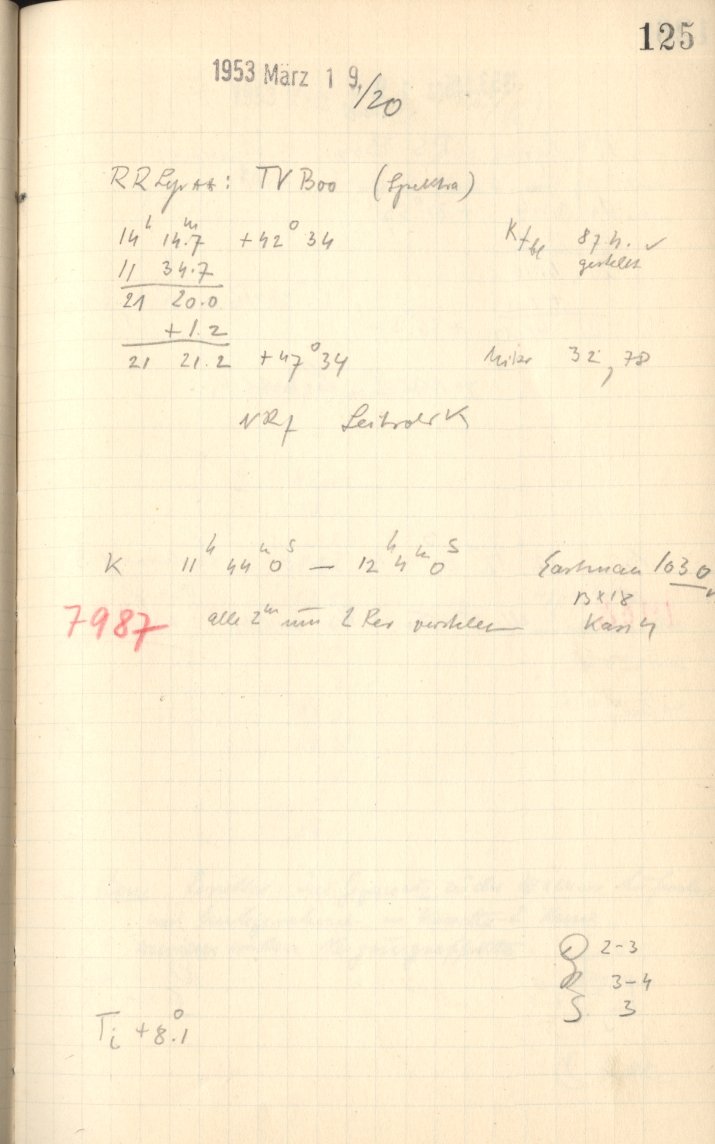 125
1953 März 19./20
RR Lyr **: TV Boo (Spektra)
14h 14m.7 +42° 34
11 34.7
21 20.0
+1.2
21 21.2 +47° 34
K 87.4. ✓
gestellt
32, 78
Leitrohr K
K 11h 44m 0s — 12h 4m 0s
Eastman 103 O
13x18
Kass 4
7987 alle 2m um 2 Rev verstellen
2-3
3-4
S 3
Ti +8°.1